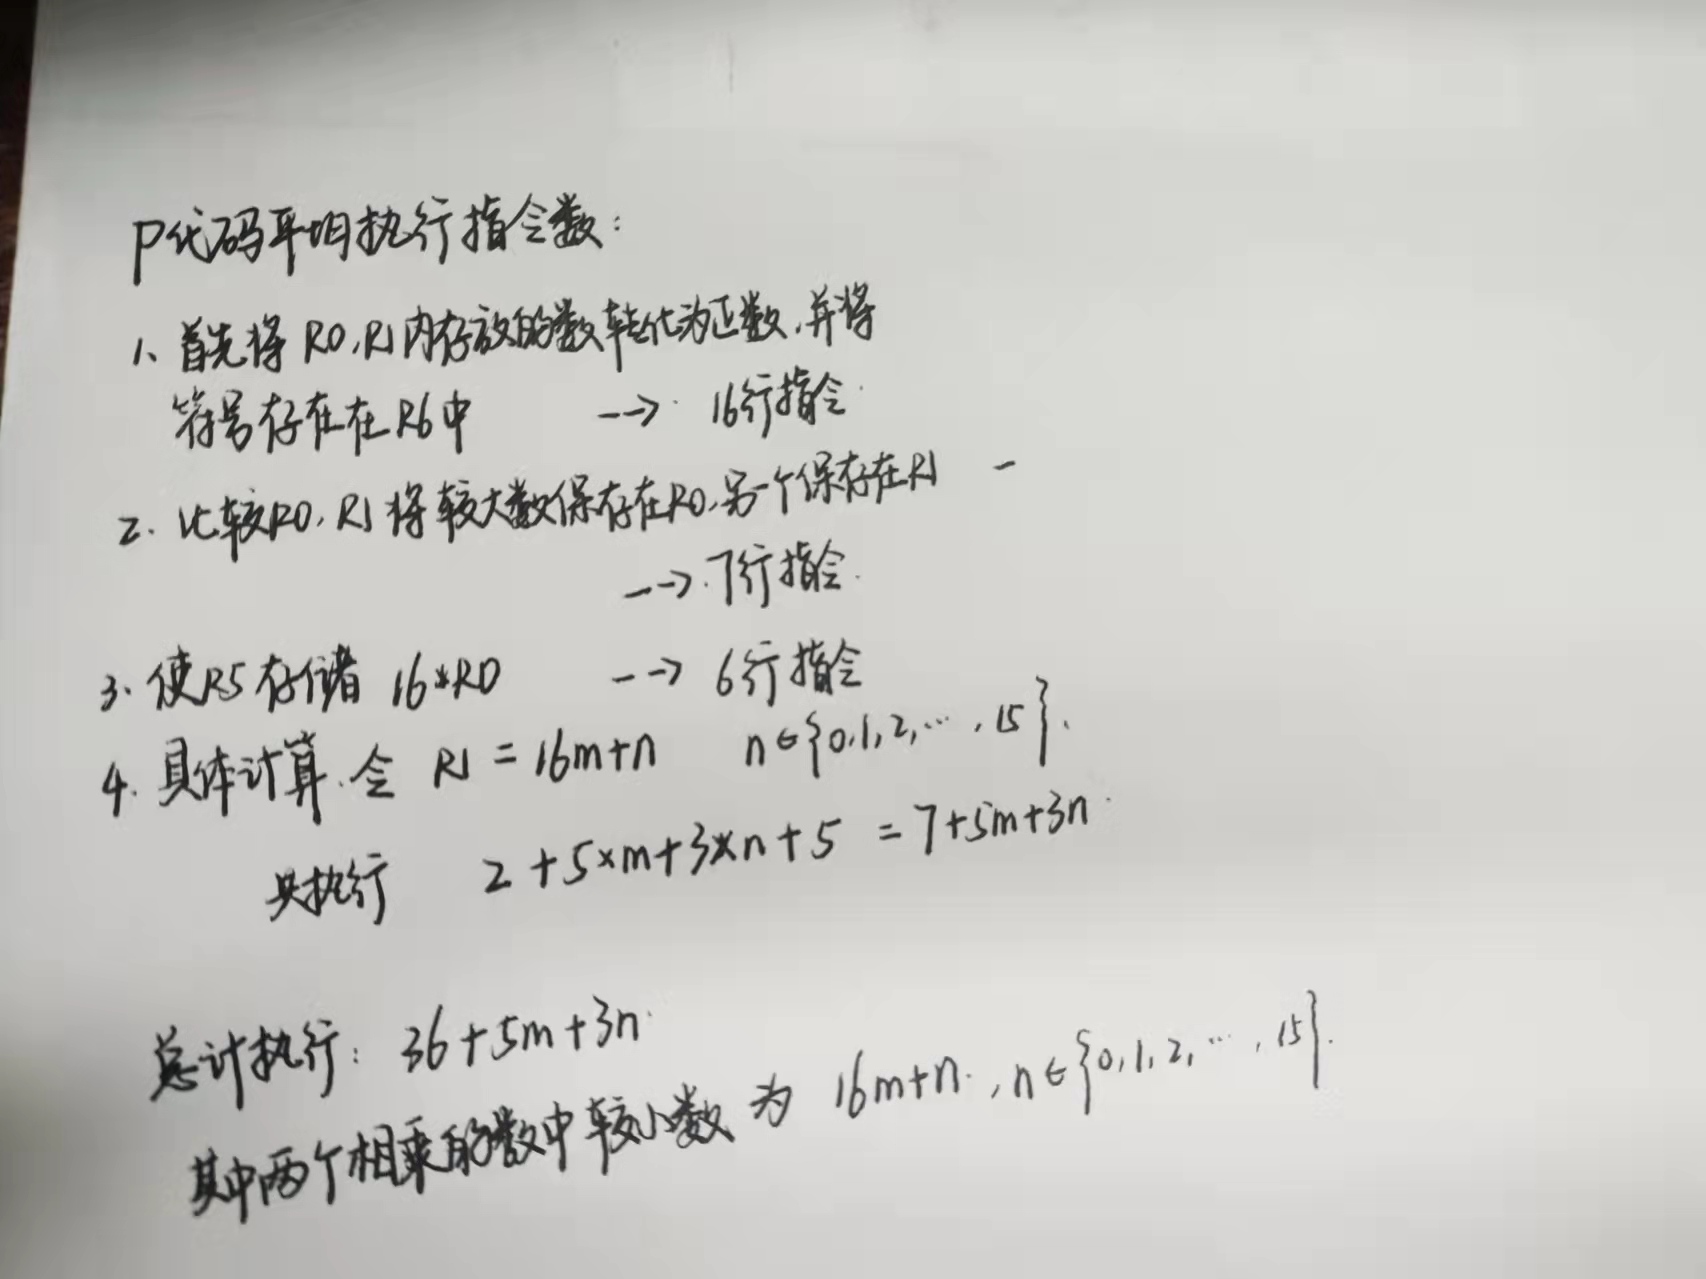 P代码平均执行指令数:
1、首先将 R0,R1内存放的数转化为正数,并将
符号存在在R6中 --> 16行指令.
2. 比较R0,R1将较大数保存在R0,另一个保存在R1 -
--> 7行指令.
3. 使R5存储 16*R0 --> 6行指令
4. 具体计算.令 R1 = 16m+n n∈{0,1,2,…,15}.
共执行 2+5×m+3×n+5 = 7+5m+3n.
总计执行: 36+5m+3n.
其中两个相乘的数中较小数为 16m+n.,n∈{0,1,2,…,15}.